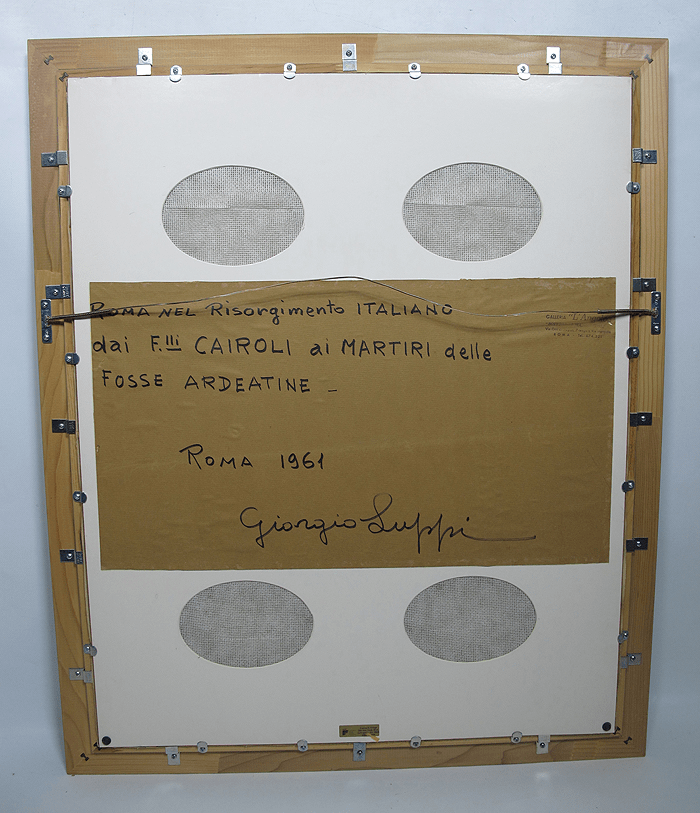 ROMA NEL Risorgimento ITALIANO
dai F.lli CAIROLI ai MARTIRI delle
FOSSE ARDEATINE –
ROMA 1961
Giorgio Luppi